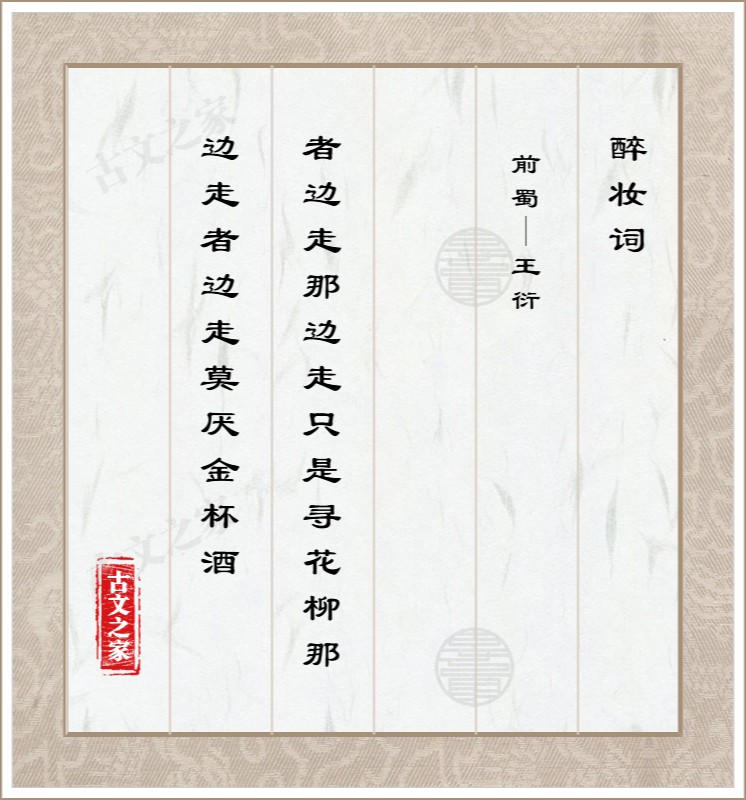 醉妆词
前蜀—王衍
者边走那边走只是寻花柳那
边走者边走莫厌金杯酒
古文之家
古文之家
文之家